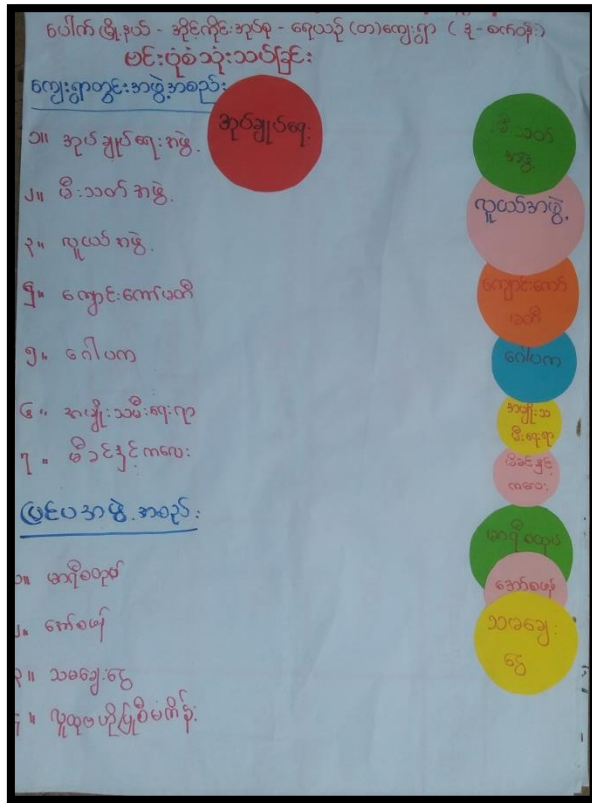 ပေါက်မြို့နယ် - အိုင်ကိုင်းအုပ်စု - ရေယဉ် (တ)ကျေးရွာ ( ဒု - စက်ဝန်း)
ဗင်းပုံစံသုံးသပ်ခြင်း
ကျေးရွာတွင်းအဖွဲ့အစည်း
၁။ အုပ်ချုပ်ရေးအဖွဲ့
၂။ မီးသတ်အဖွဲ့
၃။ လူငယ်အဖွဲ့
၄။ ကျောင်းကော်မတီ
၅။ ဂေါပက
၆။ အမျိုးသမီးရေးရာ
၇။ မိခင်နှင့်ကလေး
ပြင်ပအဖွဲ့အစည်း
၁။ မာရီစတုပ်
၂။ အော်စဖန်
၃။ သမချေးငွေ
၄။ လူထုဗဟိုပြုစီမံကိန်း
အုပ်ချုပ်ရေး
မီးသတ်
အဖွဲ့
လူငယ်အဖွဲ့
ကျောင်းကော်
မတီ
ဂေါပက
အမျိုးသ
မီးရေးရာ
မိခင်နှင့်
ကလေး
မာရီစတုပ်
အော်စဖန်
သမချေး
ငွေ